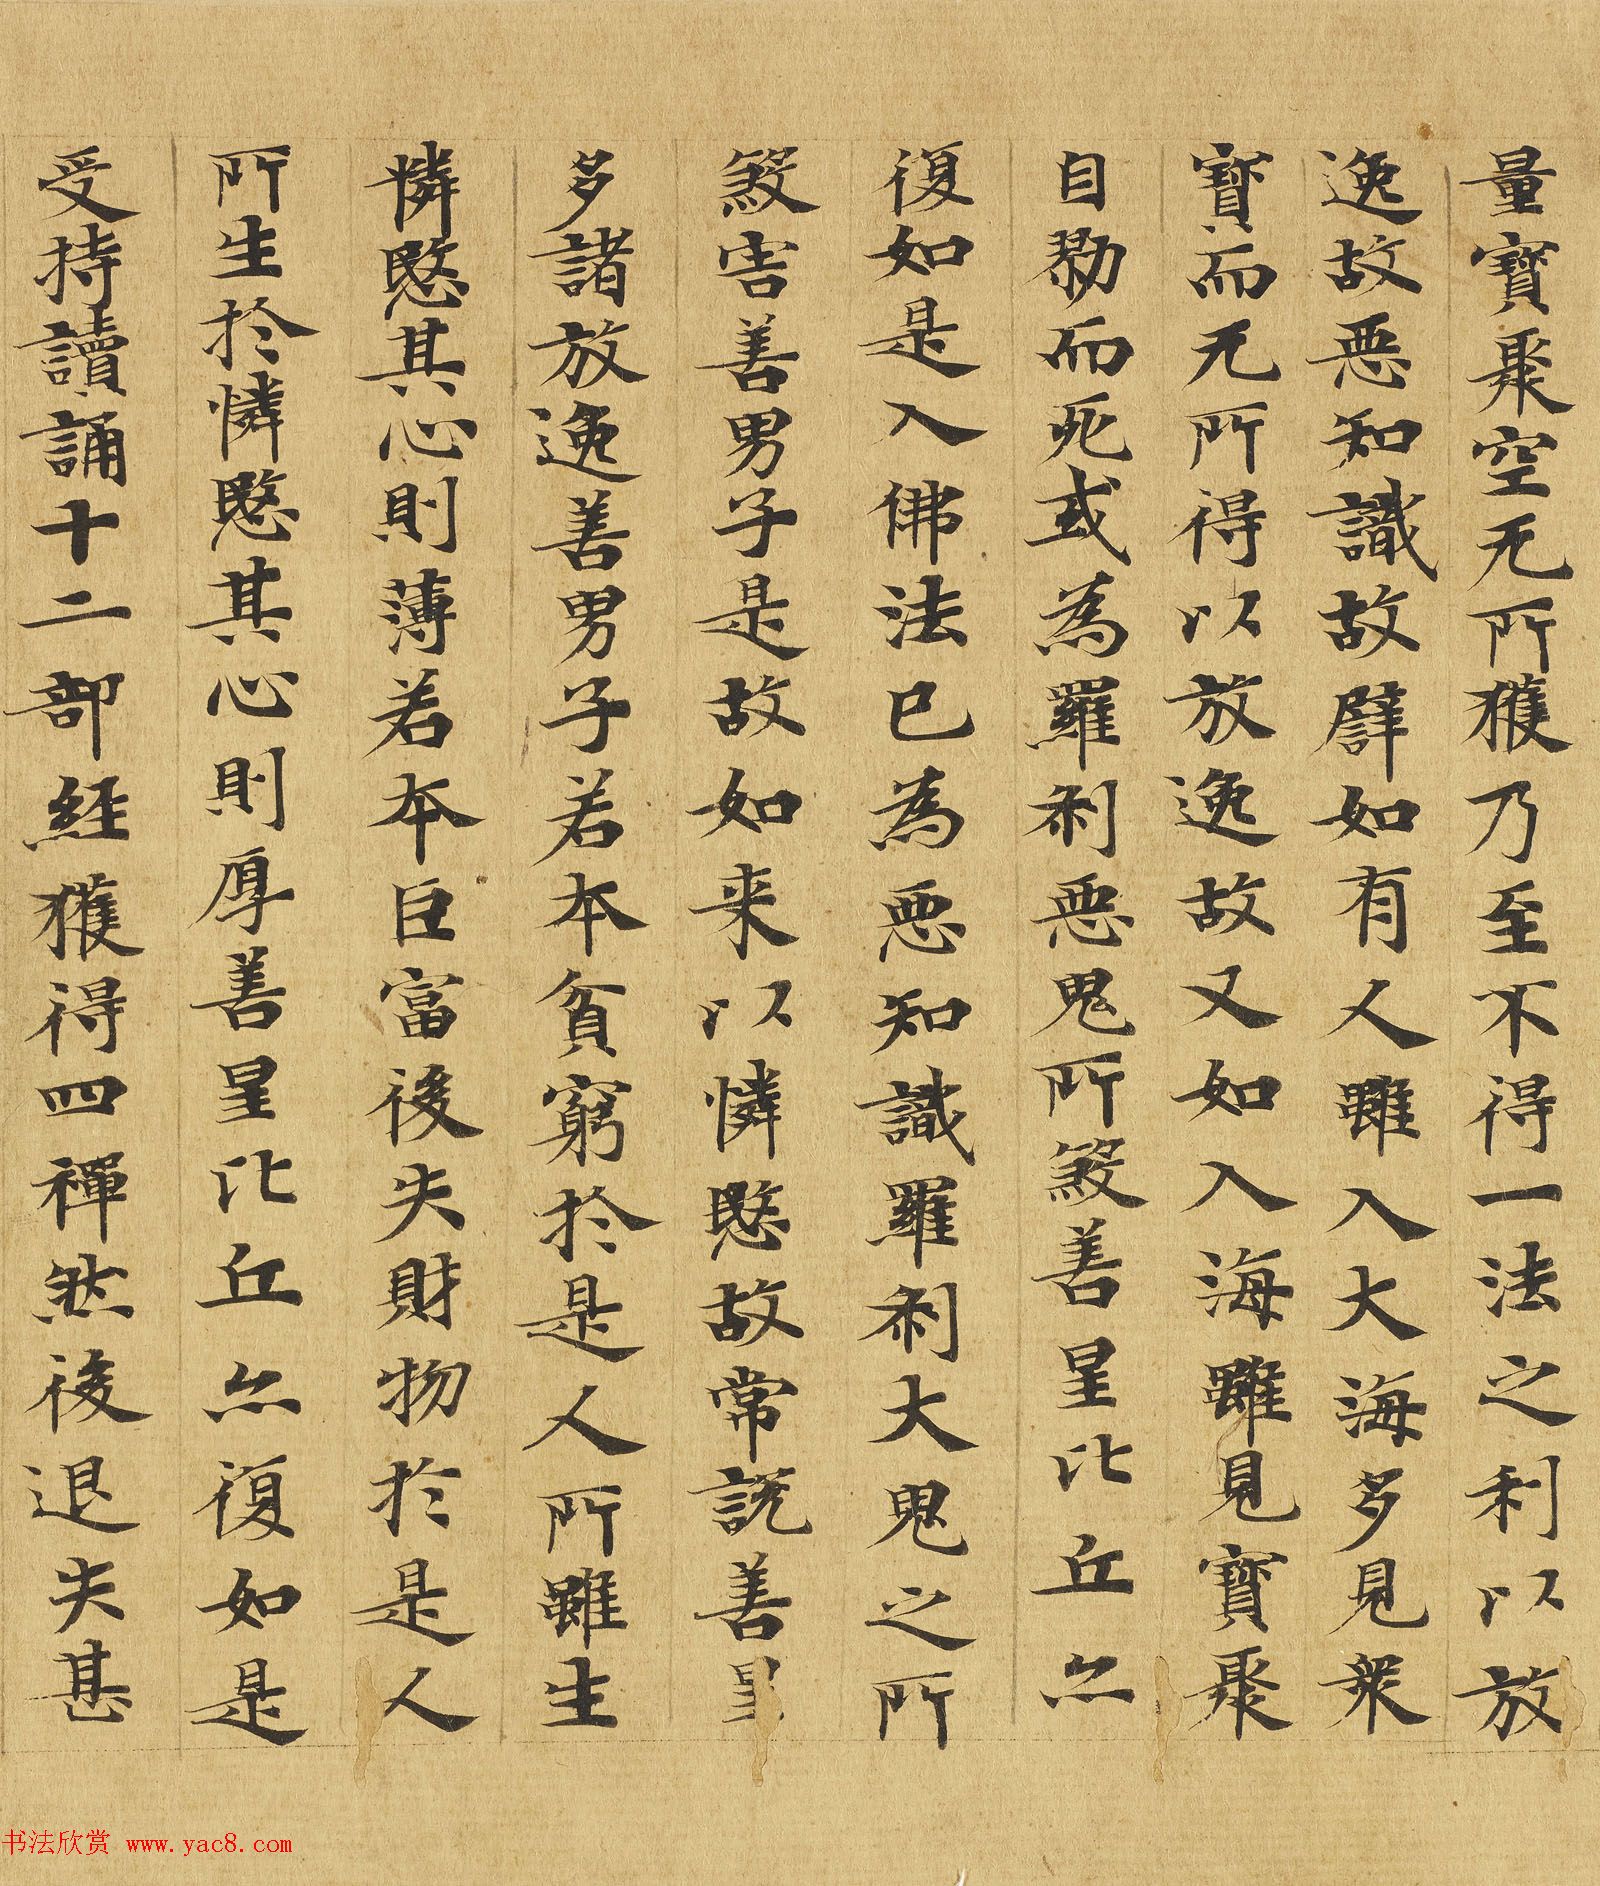 量寶聚空无所獲乃至不得一法之利以放
逸故惡知識故譬如有人雖入大海多見衆
寶而无所得以放逸故又如入海雖見寶聚
自勠而死或為羅刹惡鬼所煞善星比丘亦
復如是入佛法已為惡知識羅刹大鬼之所
煞害善男子是故如来以憐愍故常說善星
多諸放逸善男子若本貧窮於是人所雖生
憐愍其心則薄若本巨富後失財物於是人
所生於憐愍其心則厚善星比丘亦復如是
受持讀誦十二部經獲得四禪然後退失甚
书法欣赏 www.yac8.com